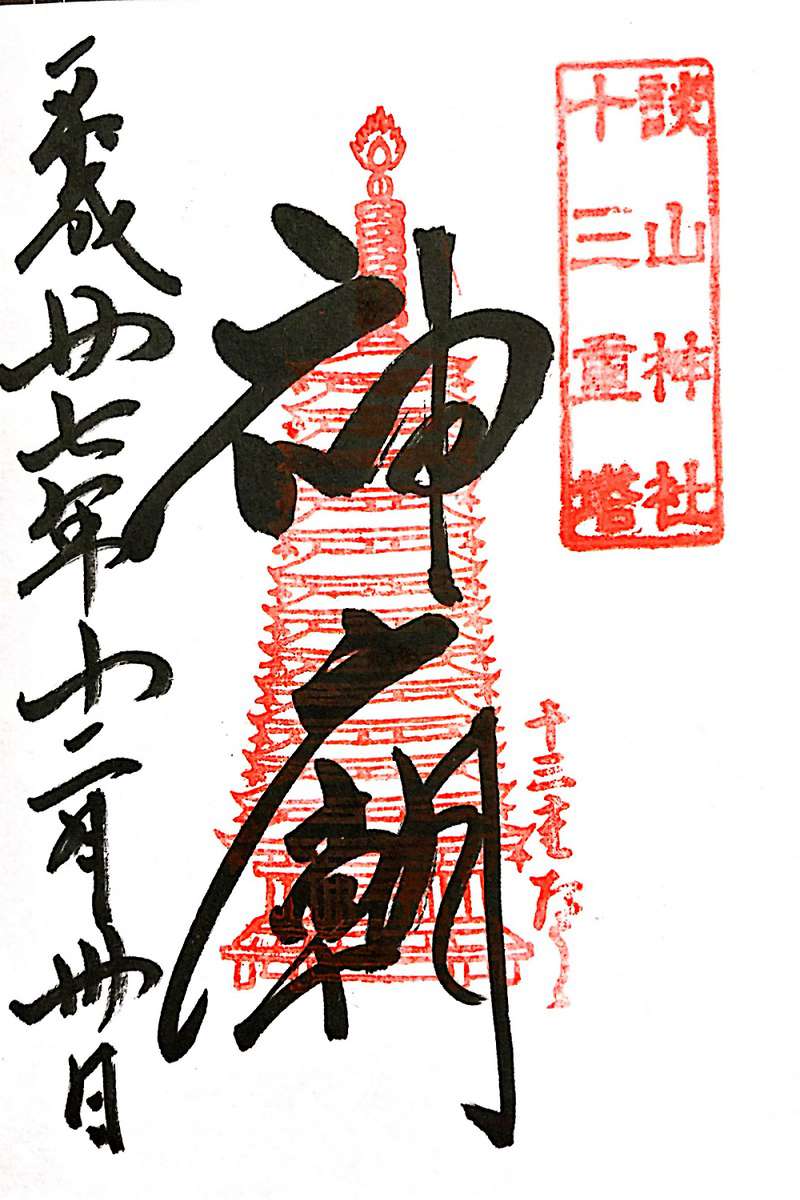 談山神社
十三重塔
神廟
十三重塔
平成廿七年十二月卅日